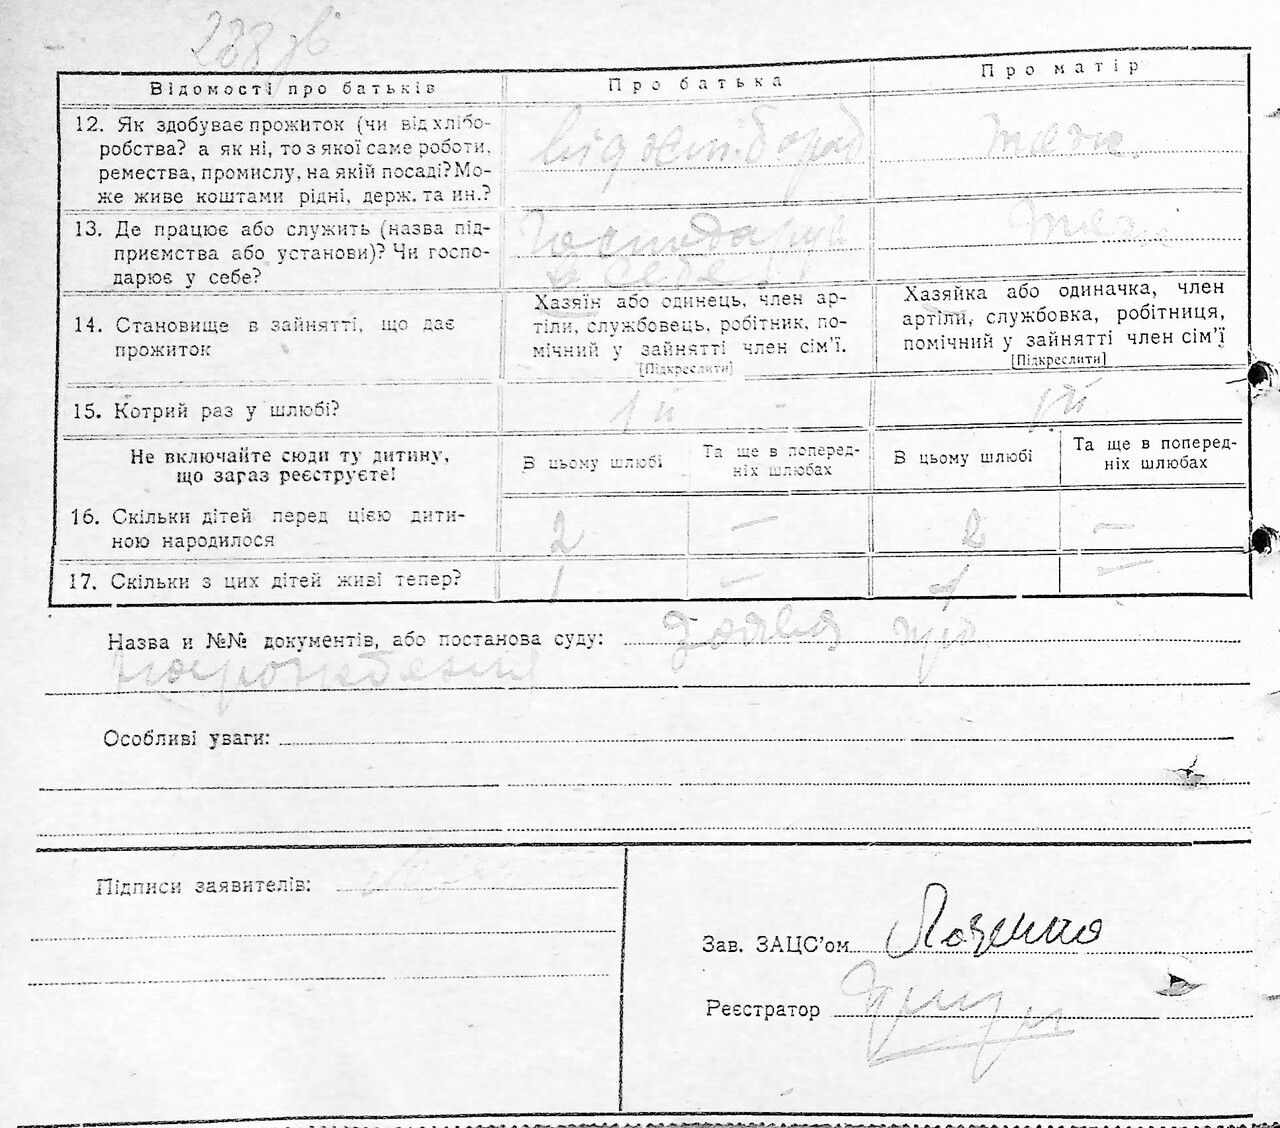 Відомості про батьків Про батька Про матір
12. Як здобуває прожиток (чи від хлібо-
робства? а як ні, то з якої саме роботи,
ремества, промислу, на якій посаді? Мо-
же живе коштами рідні, держ. та ин.?
від хлібород теж
13. Де працює або служить (назва під-
приємства або установи)? Чи госпо-
дарює у себе?
Господарує
у себе
теж
14. Становище в зайнятті, що дає
прожиток
Хазяїн або одинець, член ар-
тіли, службовець, робітник, по-
мічний у зайнятті член сім'ї.
[Підкреслити]
Хазяйка або одиначка, член
артіли, службовка, робітниця,
помічний у зайнятті член сім'ї
[Підкреслити]
15. Котрий раз у шлюбі? 1й - 1й
Не включайте сюди ту дитину,
що загаз реєструєте!
В цьому шлюбі
Та ще в поперед-
ніх шлюбах
В цьому шлюбі
Та ще в поперед-
ніх шлюбах
16. Скільки дітей перед цією дити-
ною народилося
2 — 2 —
17. Скільки з цих дітей живі тепер? 1 — 1 —
Назва и №№ документів, або постанова суду: Заява про
нарождения
Особливі уваги:
Підписи заявителів:
Зав. ЗАЦС'ом
Реєстратор